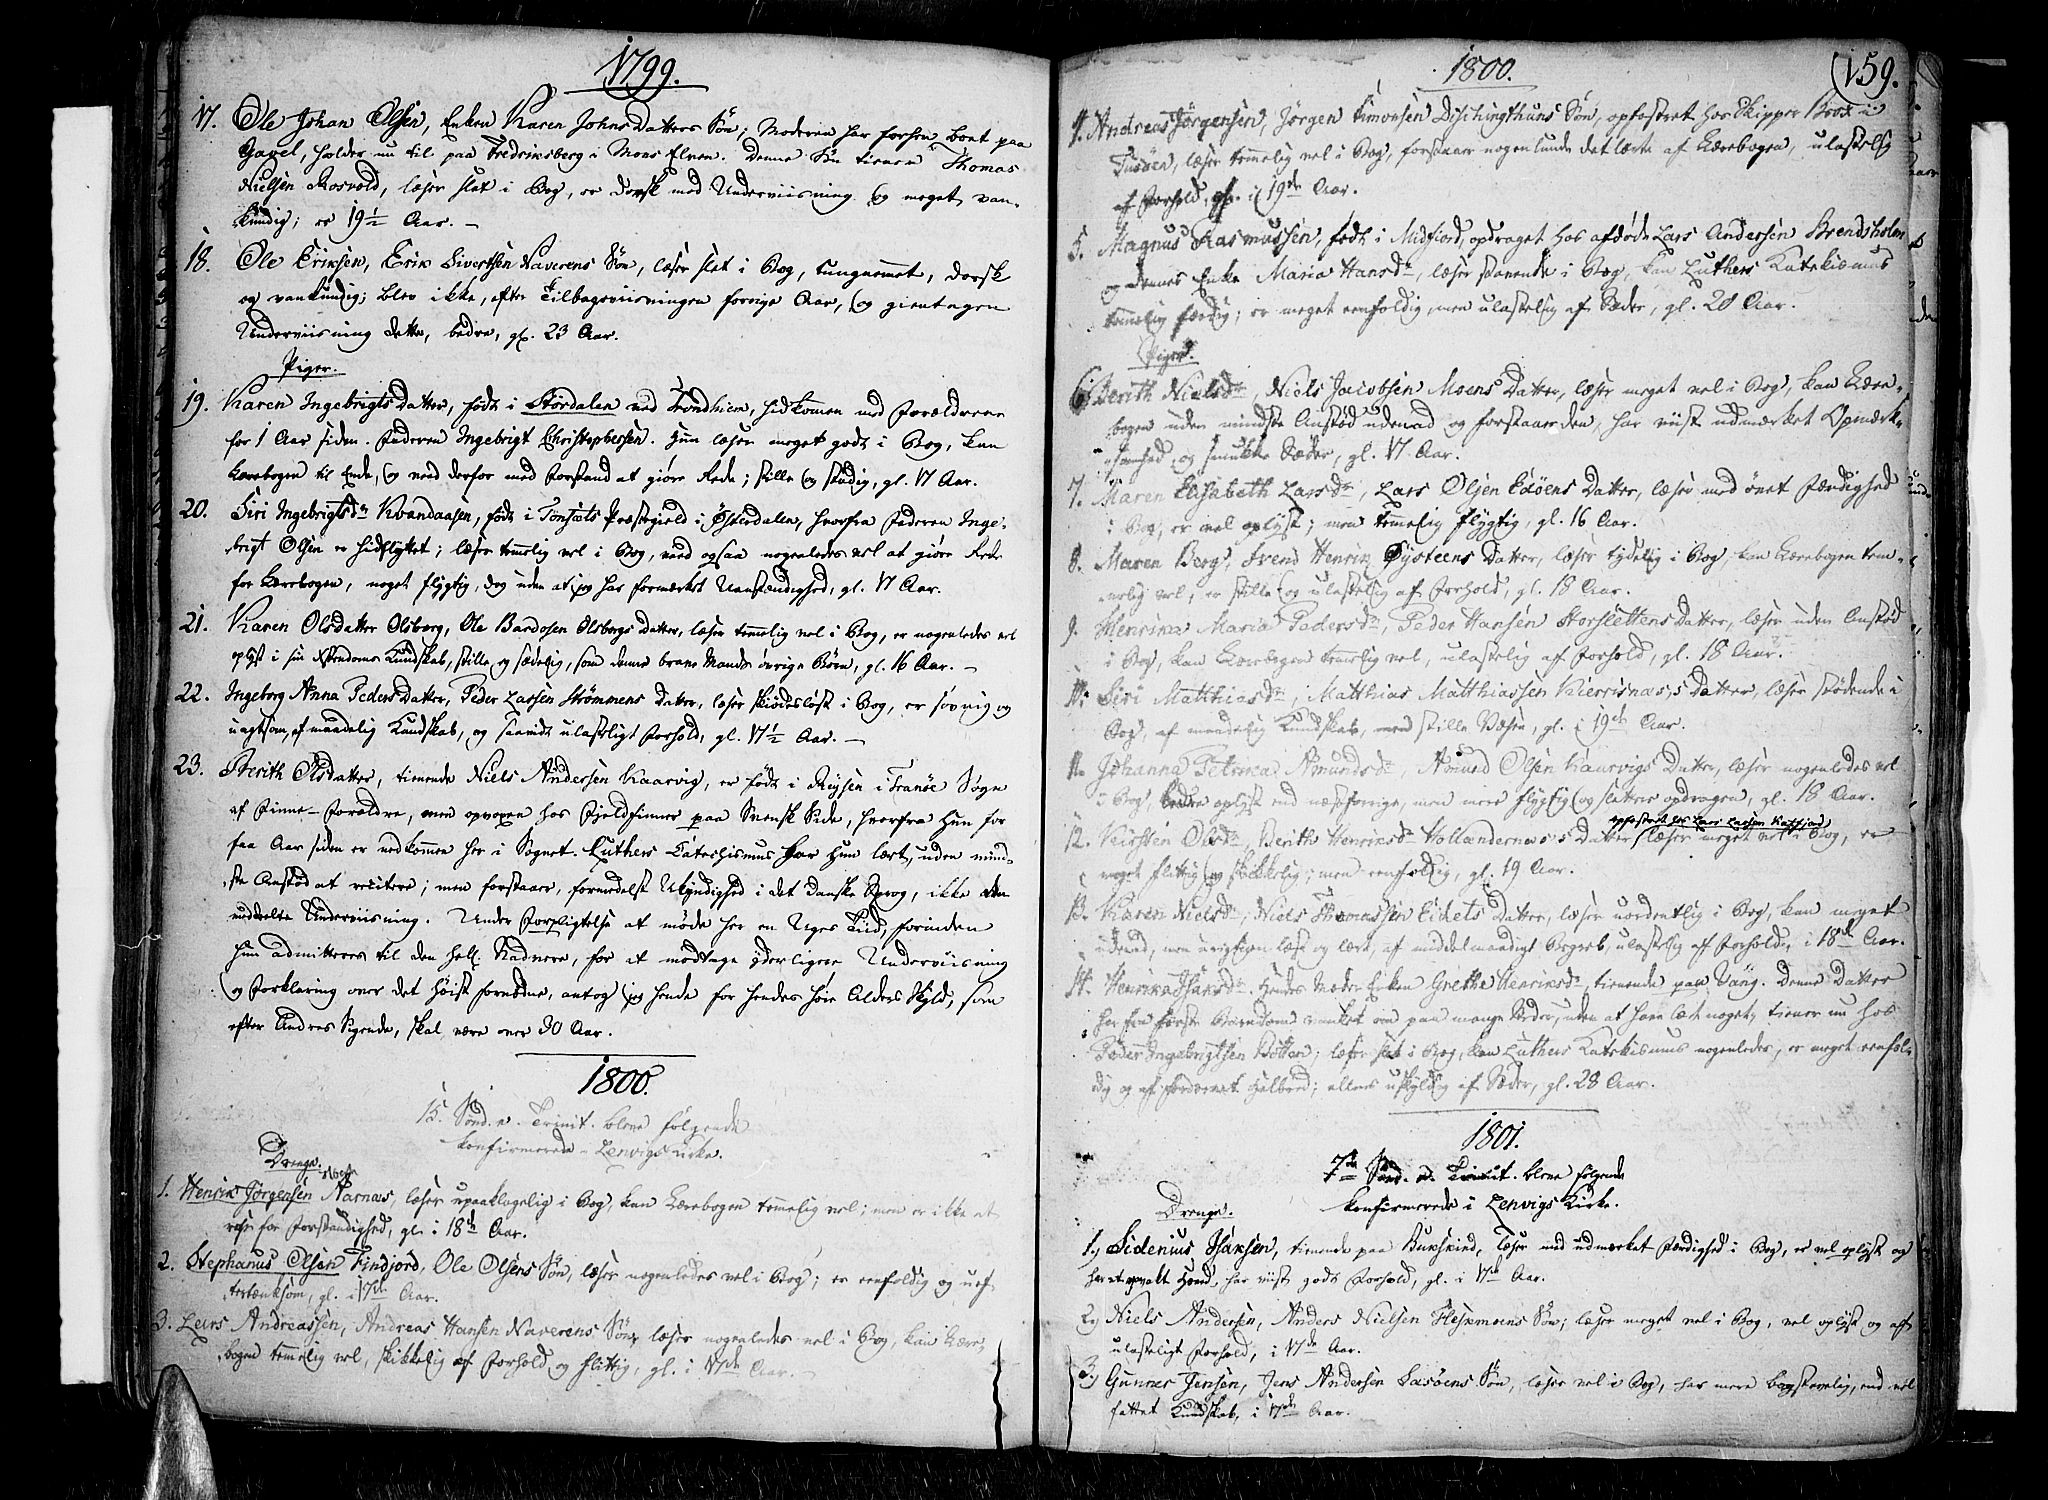 1799.
17. Ole Johan Olsen, Enken Karen Johns Datters Søn; Moderen har forhen boet paa
Gavel, holder nu til paa Fredriksberg i Mons Elven. Denne Søn tiener Thomas
Nielsen Rosvold, læser slet i Bog, er dorsk mod Underviisning og meget van-
kundig; er 19½ Aar. —
18. Ole Eriksen, Erik Sivertsen Naverens Søn, læser slet i Bog, tungnemmet, dorsk
og vankundig; blev ikke, efter Tilbageviisningen forrige Aar, og gientagen
Underviisning dette, bedre, gl. 23 Aar.
Piger.
19. Karen Ingebrigts Datter, født i Størdalen ved Trondhiem, hidkommen med Forældrene
for 1 Aar siden. Faderen Ingebrigt Christophersen. Hun læser meget godt i Bog, kan
Lærebogen til Ende, og veed derfor med Forstand at giøre Rede; stille og stadig, gl. 17 Aar.
20. Siri Ingebrigtsdr Kvandaasen, født i Tonsæts Præstegield i Østerdalen, hvorfra Faderen Inge-
brigt Olsen er hidflyttet; læser temmelig vel i Bog, veed ogsaa nogenledes vel at giøre Rede
for Lærebogen, noget flygtig, dog uden at jeg har formærket Uanstændighed, gl. 17 Aar.
21. Karen Olsdatter Olsborg, Ole Bardosen Olsborgs Datter, læser temmelig vel i Bog, er nogenledes vel
oplyst i sin Kristendoms Kundskab, stille og sædelig, som denne brave Mands øvrige Børn, gl. 16 Aar. —
22. Ingeborg Anna Peders Datter, Peder Larsen Strømmens Datter, læser skiødesløst i Bog, er søvnig og
uagtsom, af maadelig Kundskab, og saavidt ulasteligt Forhold, gl. 17½ Aar. —
23. Berith Olsdatter, tienende Niels Andersen Kaarvig, er født i Reysen i Tranøe Sogn
af Finne-Forældre, men opvoxen hos Fieldfinner paa Svensk Side, hvorfra hun for
faa Aar siden er nedkommen her i Sognet. Luthers Catechismus har hun lært, uden mind-
ste Anstød at recitere; men forstaaer, formedelst Ukyndighed i det danske Sprog, ikke den
meddeelte Underviisning. Under Forpligtelse at møde her en Uges Tiid, forinden
hun admitteres til den hell. Nadvere, for at modtage yderligere Underviisning
og Forklaring over det høist fornødne, antog jeg hende for hendes høie Alders Skyld, som
efter Andres Sigende, skal være over 30 Aar.
1800.
15. Sønd. e. Trinit. bleve følgende
konfirmerede i Lenvigs Kirke.
Drenge.
1. Henrik Jørgensen Aarnæs, læser upaaklagelig i Bog, kan Lærebogen temmelig vel; men er ikke at
rose for Forstandighed, gl. i 18de Aar.
2. Stephanus Olsen Findjord, Ole Olsens Søn, læser nogenledes vel i Bog; er eenfoldig og uef-
tertænksom, gl. i 17de Aar.
3. Lars Andreassen, Andreas Hansen Naverens Søn, læser nogenledes vel i Bog, kan Lære-
bogen temmelig vel, skikkelig af Forhold og flittig, gl. i 17de Aar. —
1800.
159.
4. Andreas Jørgensen, Jørgen Simonsen Søn, opfostret hos Skipper i
læser temmelig vel i Bog, forstaaer nogenlunde det læste af Lærebogen, ulastelig
af Forhold, gl. i 19de Aar.
5. Magnus Rasmussen, født i Midfiord, opdraget hos afdøde Lars Andersen Brendsholm
og dennes Enke Maria Hansdr, læser stavende i Bog, kan Luthers Katekismus
temmelig færdig; er meget eenfoldig, men ulastelig af Sæder, gl. 20 Aar.
Piger.
6. Berith Nielsdr, Niels Jacobsen Moens Datter, læser meget vel i Bog, kan Lære-
bogen uden mindste Anstød udenad og forstaaer den, har viist udmærket Opmærk-
somhed og smukke Sæder, gl. 17 Aar.
7. Maren Elisabeth Larsdr, Lars Olsen Edøens Datter, læser med øvet Færdighed
i Bog, er vel oplyst; men temmelig flygtig, gl. 16 Aar.
8. Maren Berg, Svend Henrik Øysteens Datter, læser tydelig i Bog, kan Lærebogen tem-
melig vel, er stille og ulastelig af Forhold, gl. 18 Aar.
9. Henrika Maria Pedersdr, Peder Hansen Storslettens Datter, læser uden Anstød
i Bog, kan Lærebogen temmelig vel, ulastelig af Forhold, gl. 18 Aar.
10. Siri Matthiasdr, Matthias Matthiassen Kierrisnæs's Datter, læser stødende i
Bog, af maadelig Kundskab, med stille Væsen, gl. i 19de Aar.
11. Johanna Petrika Amundsdr, Amund Olsen Kaarvigs Datter, læser nogenledes vel
i Bog, bedre oplyst end næstforrige, men mere flygtig og slettere opdragen, gl. 18 Aar.
opfostret hos Lars Larsen Kattfiord
12. Kirsten Olsdr, Berith Henriksdr Hollændernæs's Datter, læser meget vel i Bog, er
meget flittig og skikkelig; men eenfoldig, gl. 19 Aar.
13. Karen Nielsdr, Niels Thomassen Eidets Datter, læser uordentlig i Bog, kan meget
udenad, men urigtigen læst og lært, af middelmaadigt Begreb, ulastelig af Forhold, i 18de Aar.
14. Henrika Isaksdr. Hendes Moder Enken Grethe Henriksdr, tienende paa Vang. Denne Datter
har fra første Barndom vanket om paa mange Steder, uden at have lært noget, tiener nu hos
Peder Ingebrigtsen Botten; læser slet i Bog, kan Luthers Katekismus nogenledes, er meget eenfol-
dig og af fordærvet Helbred; ellers uskyldig af Sæder, gl. 28 Aar.
1801.
7de Sønd. e. Trinit. bleve følgende
konfirmerede i Lenvigs Kirke.
Drenge.
1.) Sidenius Isaksen, tienende paa Bukskind, læser med udmærket Færdighed i Bog, er vel oplyst og
har et opvakt Hoved, har viist godt Forhold, gl. i 17de Aar.
2.) Niels Andersen, Anders Nielsen Flesmoens Søn; læser meget vel i Bog, vel oplyst og af
ulasteligt Forhold, i 17de Aar.
3.) Gunner Jensen, Jens Andersen Søn, læser vel i Bog, har mere bogstavelig, end vel
fattet Kundskab, i 17de Aar.